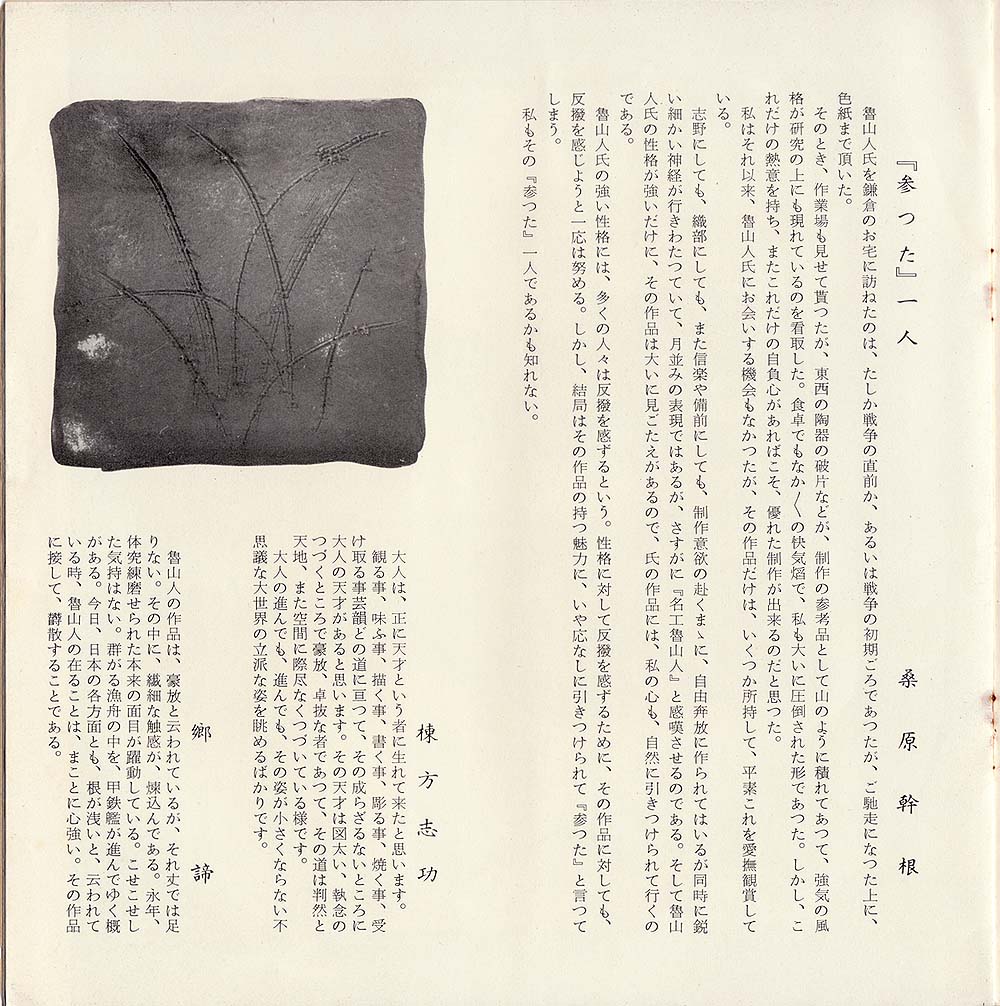 『参つた』一人
桑原幹根
魯山人氏を鎌倉のお宅に訪ねたのは、たしか戦争の直前か、あるいは戦争の初期ごろであつたが、ご馳走になつた上に、
色紙まで頂いた。
そのとき、作業場も見せて貰つたが、東西の陶器の破片などが、制作の参考品として山のように積れてあつて、強気の風
格が研究の上にも現れているのを看取した。食卓でもなか〳〵の快気熖で、私も大いに圧倒された形であつた。しかし、こ
れだけの熱意を持ち、またこれだけの自負心があればこそ、優れた制作が出来るのだと思つた。
私はそれ以来、魯山人氏にお会いする機会もなかつたが、その作品だけは、いくつか所持して、平素これを愛撫観賞して
いる。
志野にしても、織部にしても、また信楽や備前にしても、制作意欲の赴くまゝに、自由奔放に作られてはいるが同時に鋭
い細かい神経が行きわたつていて、月並みの表現ではあるが、さすがに『名工魯山人』と感嘆させるのである。そして魯山
人氏の性格が強いだけに、その作品は大いに見ごたえがあるので、氏の作品には、私の心も、自然に引きつけられて行くの
である。
魯山人氏の強い性格には、多くの人々は反撥を感ずるという。性格に対して反撥を感ずるために、その作品に対しても、
反撥を感じようと一応は努める。しかし、結局はその作品の持つ魅力に、いや応なしに引きつけられて『参つた』と言つて
しまう。
私もその『参つた』一人であるかも知れない。
棟方志功
大人は、正に天才という者に生れて来たと思います。
観る事、味ふ事、描く事、書く事、彫る事、焼く事、受
け取る事芸韻どの道に亘つて、その成らざるないところに
大人の天才があると思います。その天才は図太い、執念の
つづくところで豪放、卓抜な者であつて、その道は判然と
天地、また空間に際尽なくつづいている様です。
大人の進んでも、進んでも、その姿が小さくならない不
思議な大世界の立派な姿を眺めるばかりです。
郷諦
魯山人の作品は、豪放と云われているが、それ丈では足
りない。その中に、繊細な触感が、煉込んである。永年、
体究練磨せられた本来の面目が躍動している。こせこせし
た気持はない。群がる漁舟の中を、甲鉄艦が進んでゆく概
がある。今日、日本の各方面とも、根が浅いと、云われて
いる時、魯山人の在ることは、まことに心強い。その作品
に接して、欝散することである。